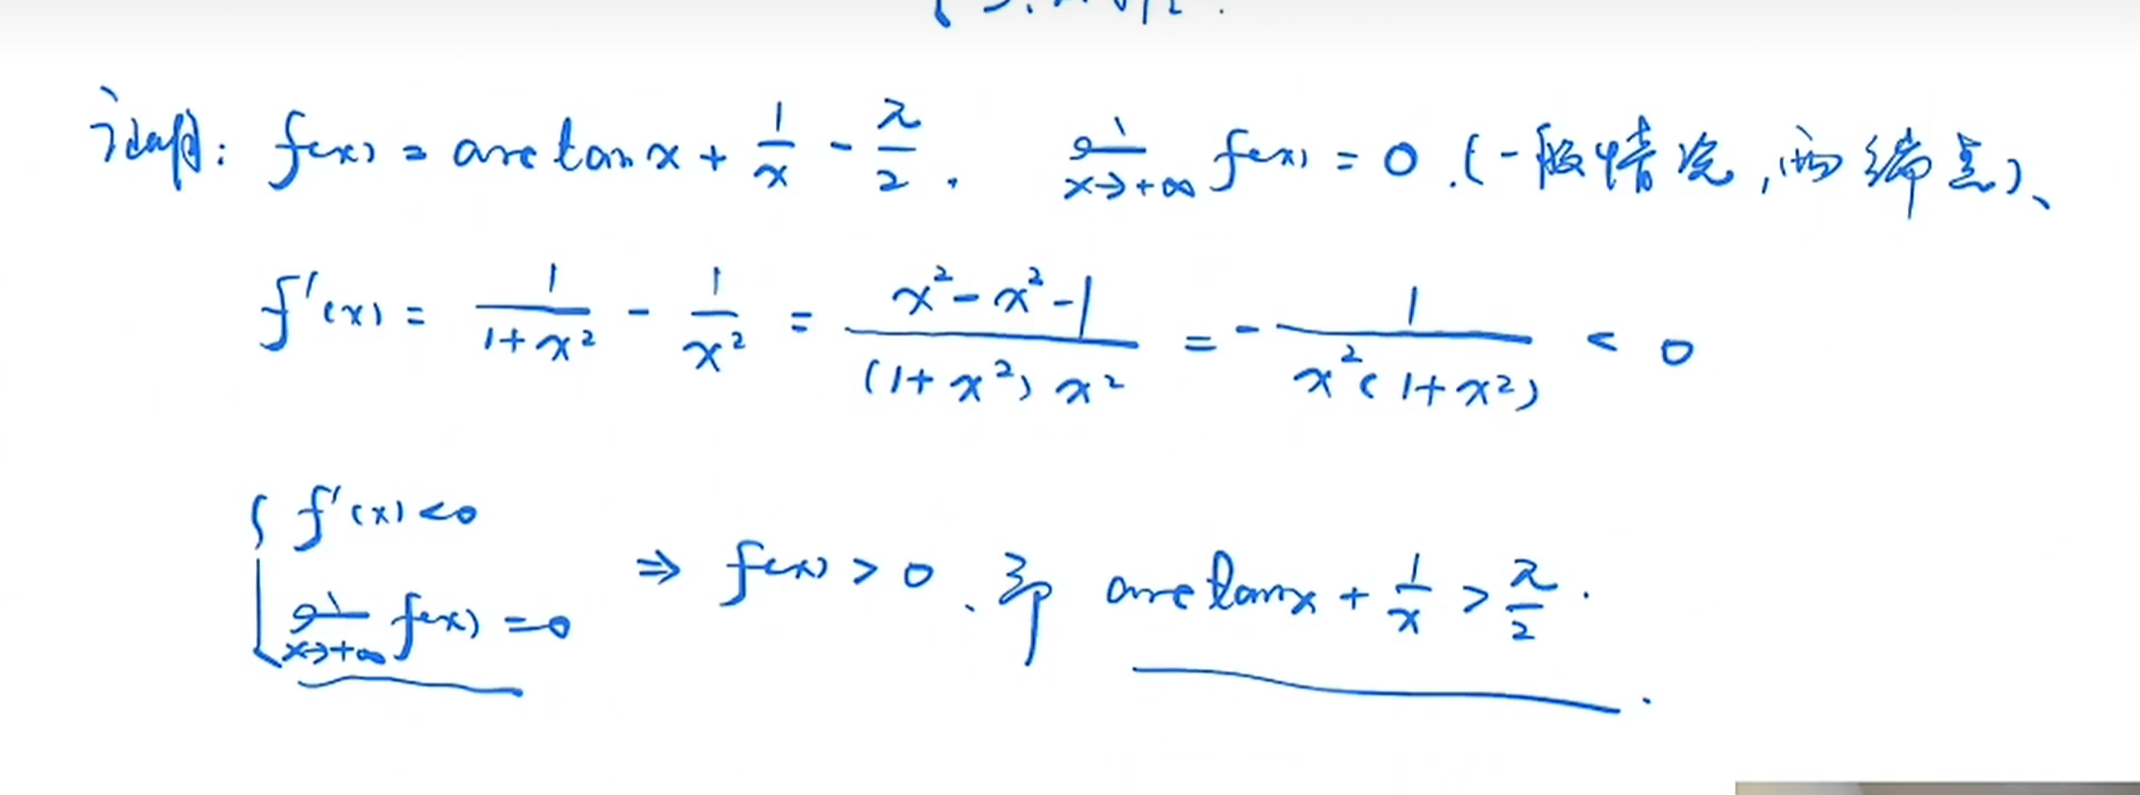 证明: f(x) = arctan x + 1/x - π/2 . lim x→+∞ f(x) = 0 .(一般情况,两端点)、
f'(x) = 1/(1+x²) - 1/x² = (x²-x²-1)/((1+x²)x²) = - 1/(x²(1+x²)) < 0
{ f'(x)<0
lim x→+∞ f(x) =0 ⇒ f(x) > 0 、即 arctanx + 1/x > π/2 .